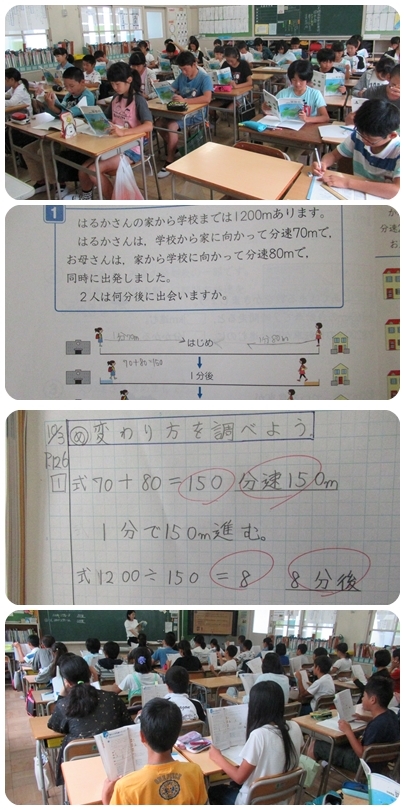 1
はるかさんの家から学校までは1200mあります。
はるかさんは、学校から家に向かって分速70mで、
お母さんは、家から学校に向かって分速80mで、
同時に出発しました。
2人は何分後に出会いますか。
はじめ
70+80=150
1分後
10/3 め 変わり方を調べよう。
P.126
1 式 70+80=150 分速150m
1分で150m進む。
式 1200÷150=8 8分後